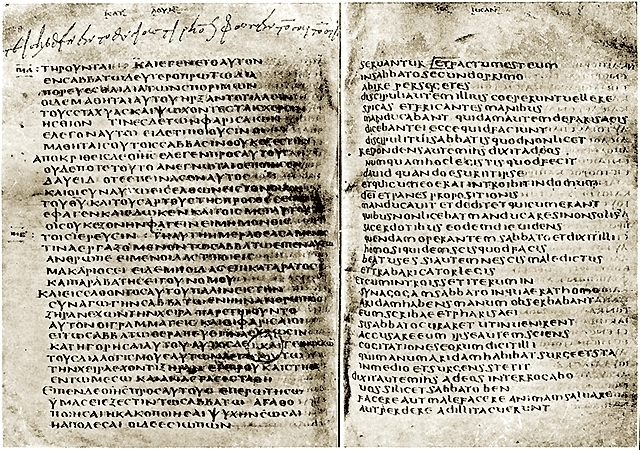 ΚΑΤ ΛΟΥΚ
ΤΗΡΟΥΝΤΑΙ · ΚΑΙΕΓΕΝΕΤΟΑΥΤΟΝ
ΕΝΣΑΒΒΑΤΩΔΕΥΤΕΡΟΠΡΩΤΩΔΙΑ
ΠΟΡΕΥΕΣΘΑΙΔΙΑΤΩΝΣΠΟΡΙΜΩΝ
ΟΙΔΕΜΑΘΗΤΑΙΑΥΤΟΥΗΡΞΑΝΤΟΤΙΛΛΕΙΝ
ΤΟΥΣΣΤΑΧΥΑΣΚΑΙΨΩΧΟΝΤΕΣΤΑΙΣΧΕΡΣΙΝ
ΗΣΘΙΟΝ ΤΙΝΕΣΔΕΤΩΝΦΑΡΙΣΑΙΩΝ
ΕΛΕΓΟΝΑΥΤΩ ΕΙΔΕΤΙΠΟΙΟΥΣΙΝΟΙ
ΜΑΘΗΤΑΙΣΟΥΤΟΙΣΣΑΒΒΑΣΙΝΟΟΥΚΕΞΕΣΤΙΝ
ΑΠΟΚΡΙΘΕΙΣΔΕΟΙΗΣ ΕΛΕΓΕΝΠΡΟΣΑΥΤΟΥΣ
ΟΥΔΕΠΟΤΕΤΟΥΤΟΑΝΕΓΝΩΤΑΙΟΕΠΟΙΗΣΕΝ
ΔΑΥΕΙΔ ΟΤΕΕΠΕΙΝΑΣΕΝΑΥΤΟΣ
ΚΑΙΟΙΣΥΝΑΥΤΩΕΙΣΕΛΘΩΝΕΙΣΤΟΝΟΙΚΟΝ
ΤΟΥΘΥΚΑΙΤΟΥΣΑΡΤΟΥΣΤΗΣΠΡΟΣΘΕΣΕΩΣ
ΕΦΑΓΕΝΚΑΙΕΔΩΚΕΝΚΑΙΤΟΙΣΜΕΤΑΥΤΟΥ
ΟΙΣΟΥΚΕΞΟΝΗΝΦΑΓΕΙΝΕΙΜΗΜΟΝΟΙΣ
ΤΟΙΣΙΕΡΕΥΣΙΝ ΤΗΑΥΤΗΗΜΕΡΑΘΕΑΣΑΜΕΝΟΣ
ΤΙΝΑΕΡΓΑΖΟΜΕΝΟΝΤΩΣΑΒΒΑΤΩΕΙΠΕΝΑΥΤΩ
ΑΝΘΡΩΠΕ ΕΙΜΕΝΟΙΔΑΣΤΙΠΟΙΕΙΣ
ΜΑΚΑΡΙΟΣΕΙ ΕΙΔΕΜΗΟΙΔΑΣΕΠΙΚΑΤΑΡΑΤΟΣ
ΚΑΙΠΑΡΑΒΑΤΗΣΕΙΤΟΥΝΟΜΟΥ
ΚΑΙΕΙΣΕΛΘΟΝΤΟΣΑΥΤΟΥΠΑΛΙΝΕΙΣΤΗΝ
ΣΥΝΑΓΩΓΗΝΣΑΒΒΑΤΩΕΝΗΗΝΑΝΘΡΩΠΟΣ
ΞΗΡΑΝΕΧΩΝΤΗΝΧΕΙΡΑΠΑΡΕΤΗΡΟΥΝΤΟ
ΑΥΤΟΝΟΙΓΡΑΜΜΑΤΕΙΣΚΑΙΟΙΦΑΡΙΣΑΙΟΙ
ΕΙΤΩΣΑΒΒΑΤΩΘΕΡΑΠΕΥΕΙΙΝΑΕΥΡΩΣΙΝ
ΚΑΤΗΓΟΡΗΣΑΙΑΥΤΟΥΑΥΤΟΣΔΕΓΕΙΝΩΣΚΩΝ
ΤΟΥΣΔΙΑΛΟΓΙΣΜΟΥΣΑΥΤΩΝΛΕΓΕΙΤΩ
ΤΗΝΧΕΙΡΑΕΧΟΝΤΙΞΗΡΑΝΕΓΕΙΡΟΥΚΑΙΣΤΗΘΙ
ΕΝΤΩΜΕΣΩ ΚΑΙΑΝΑΣΤΑΣΕΣΤΑΘΗ
ΕΙΠΕΝΔΕΟΙΗΣΠΡΟΣΑΥΤΟΥΣΕΠΕΡΩΤΗΣΩ
ΥΜΑΣΕΙΕΞΕΣΤΙΝΤΩΣΑΒΒΑΤΩ ΑΓΑΘΟ
ΠΟΙΗΣΑΙΗΚΑΚΟΠΟΙΗΣΑΙΨΥΧΗΝΣΩΣΑΙ
ΗΑΠΟΛΕΣΑΙΟΙΔΕΕΣΙΩΠΩΝ
seruantur Etfactumesteum
insabbatosecundoprimo
abirepersegetes
discipuliautemilliuscoeperuntuellere
spicasetfricantesmanibus
manducabant quidamautemdefarisaeis
dicebanteieccequidfaciunt
discipulituisabbatisquodnonlicet
Respondensautemihsdixitadeos
numquamhoclegistisquodfecit
dauidquandoesuriitipse
etquicumeoeratintroibitindomum
deietpanespropositionis
manducauitetdeditetquicumerant
quibusnonlicebatmanducaresinonsolis
sacerdotibus eodemdieuidens
quendamoperantemsabbatoetdixitilli
homosiquidemscisquodfacis
beatuses siautemnescismaledictus
ettrabaricatorlegis
Etcumintroissetiterumin
synagogamsabbatoinquaerathomo
aridamhabensmanumobserbabant
eumscribaeetpharisaei
sisabbatocuraretutinuenirent
accusareeumipseautemsciens
cogitationeseorumdicitilli
quimanumaridamhabibatsurgeetsta
inmedioetsurgensstetit
dixitautemihsadeosinterrogabo
uossilicetsabbatoben
facereautmalefacereanimamsaluare
autperdere adillitacuerunt